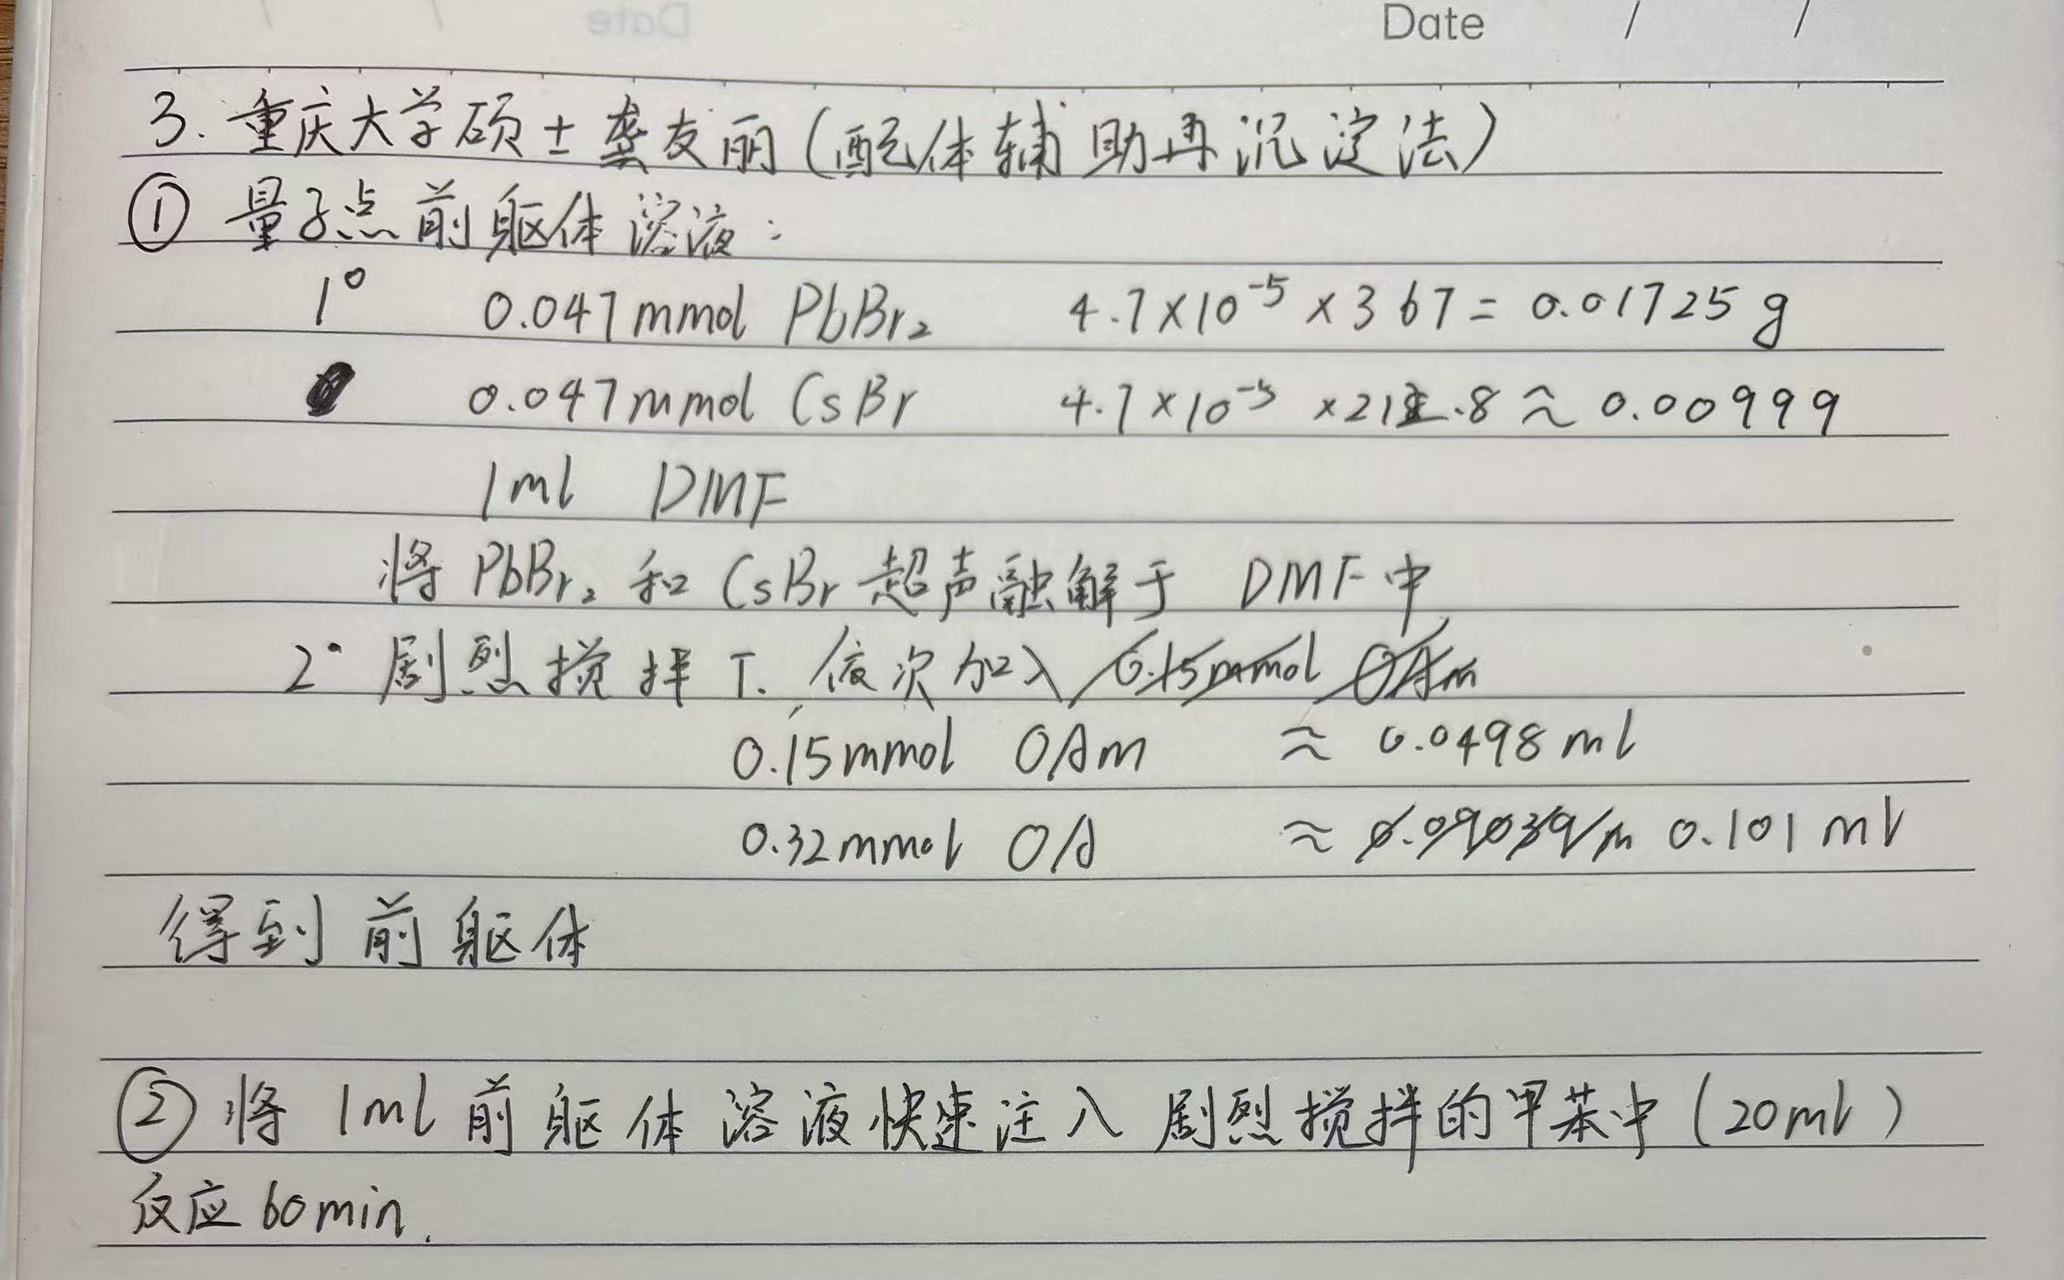 Date / /
3. 重庆大学硕士龚友丽(配体辅助再沉淀法)
① 量子点前躯体溶液:
1° 0.047mmol PbBr₂ 4.7×10⁻⁵×367=0.01725g
0.047mmol CsBr 4.7×10⁻⁵×212.8≈0.00999
1ml DMF
将PbBr₂和CsBr超声融解于DMF中
2° 剧烈搅拌下.依次加入
0.15mmol OAm ≈0.0498ml
0.32mmol OA ≈ 0.101ml
得到前躯体
② 将1ml前躯体溶液快速注入剧烈搅拌的甲苯中(20ml)
反应60min.